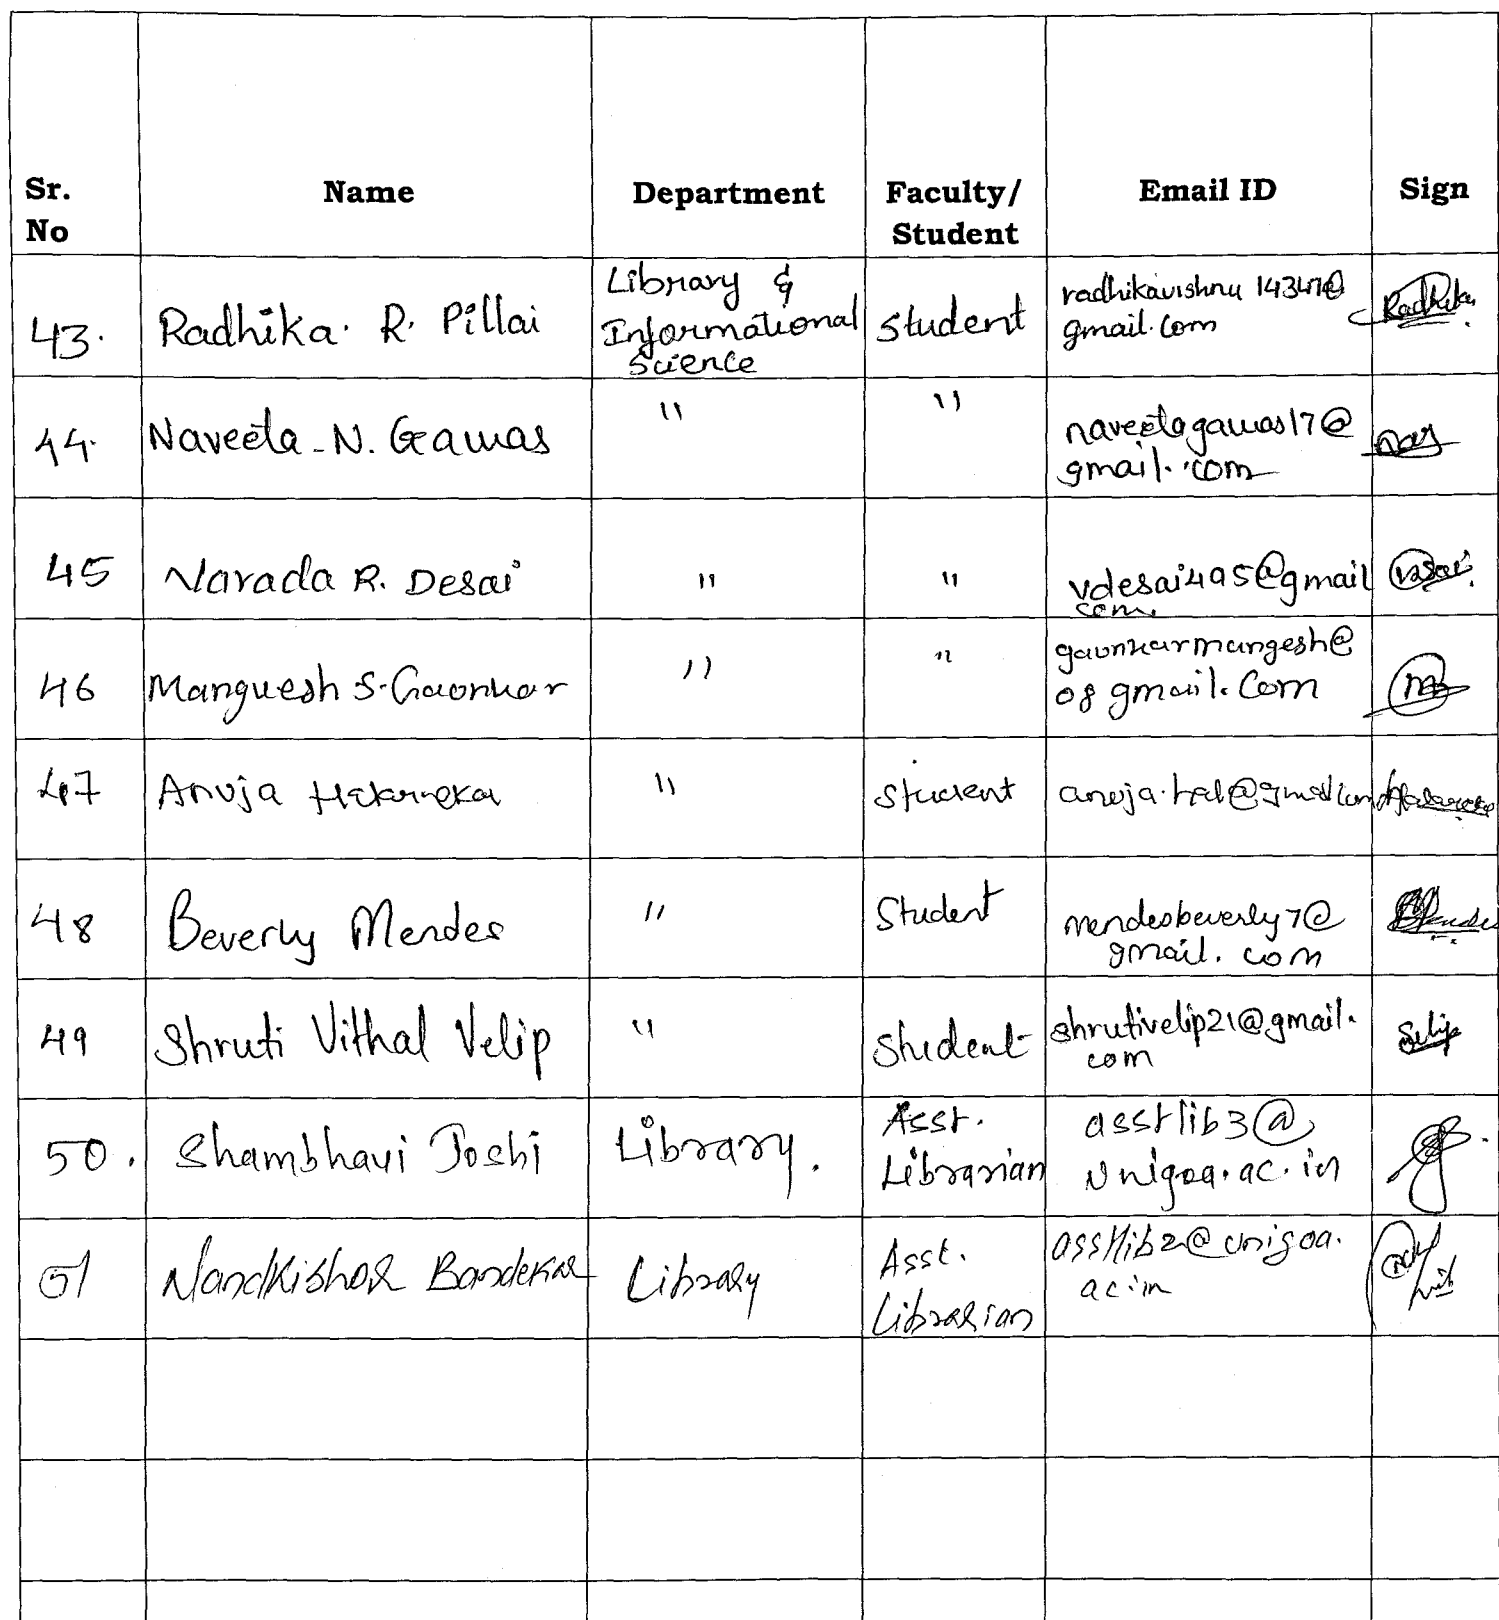 Sr. No Name Department Faculty/ Student Email ID Sign
43. Radhika. R. Pillai Library & Informational Science Student radhikavishnu 14347@ gmail.com Radhika
44. Naveeta - N. Gawas " " naveetagawas17@ gmail.com
45 Varada R. Desai " " vdesai495@gmail com.
46 Manguesh S. Gaonkar " " gaonkarmangesh@ 08 gmail.com
47 Anuja " Student
48 Beverly Mendes " Student mendesbeverly7@ gmail.com
49 Shruti Vithal Velip " Student shrutivelip21@gmail. com
50. Shambhavi Joshi Library. Asst. Librarian asstlib3@ unigoa.ac.in
51 Nandkishor Bandekar Library Asst. Librarian asstlib2@unigoa. ac.in